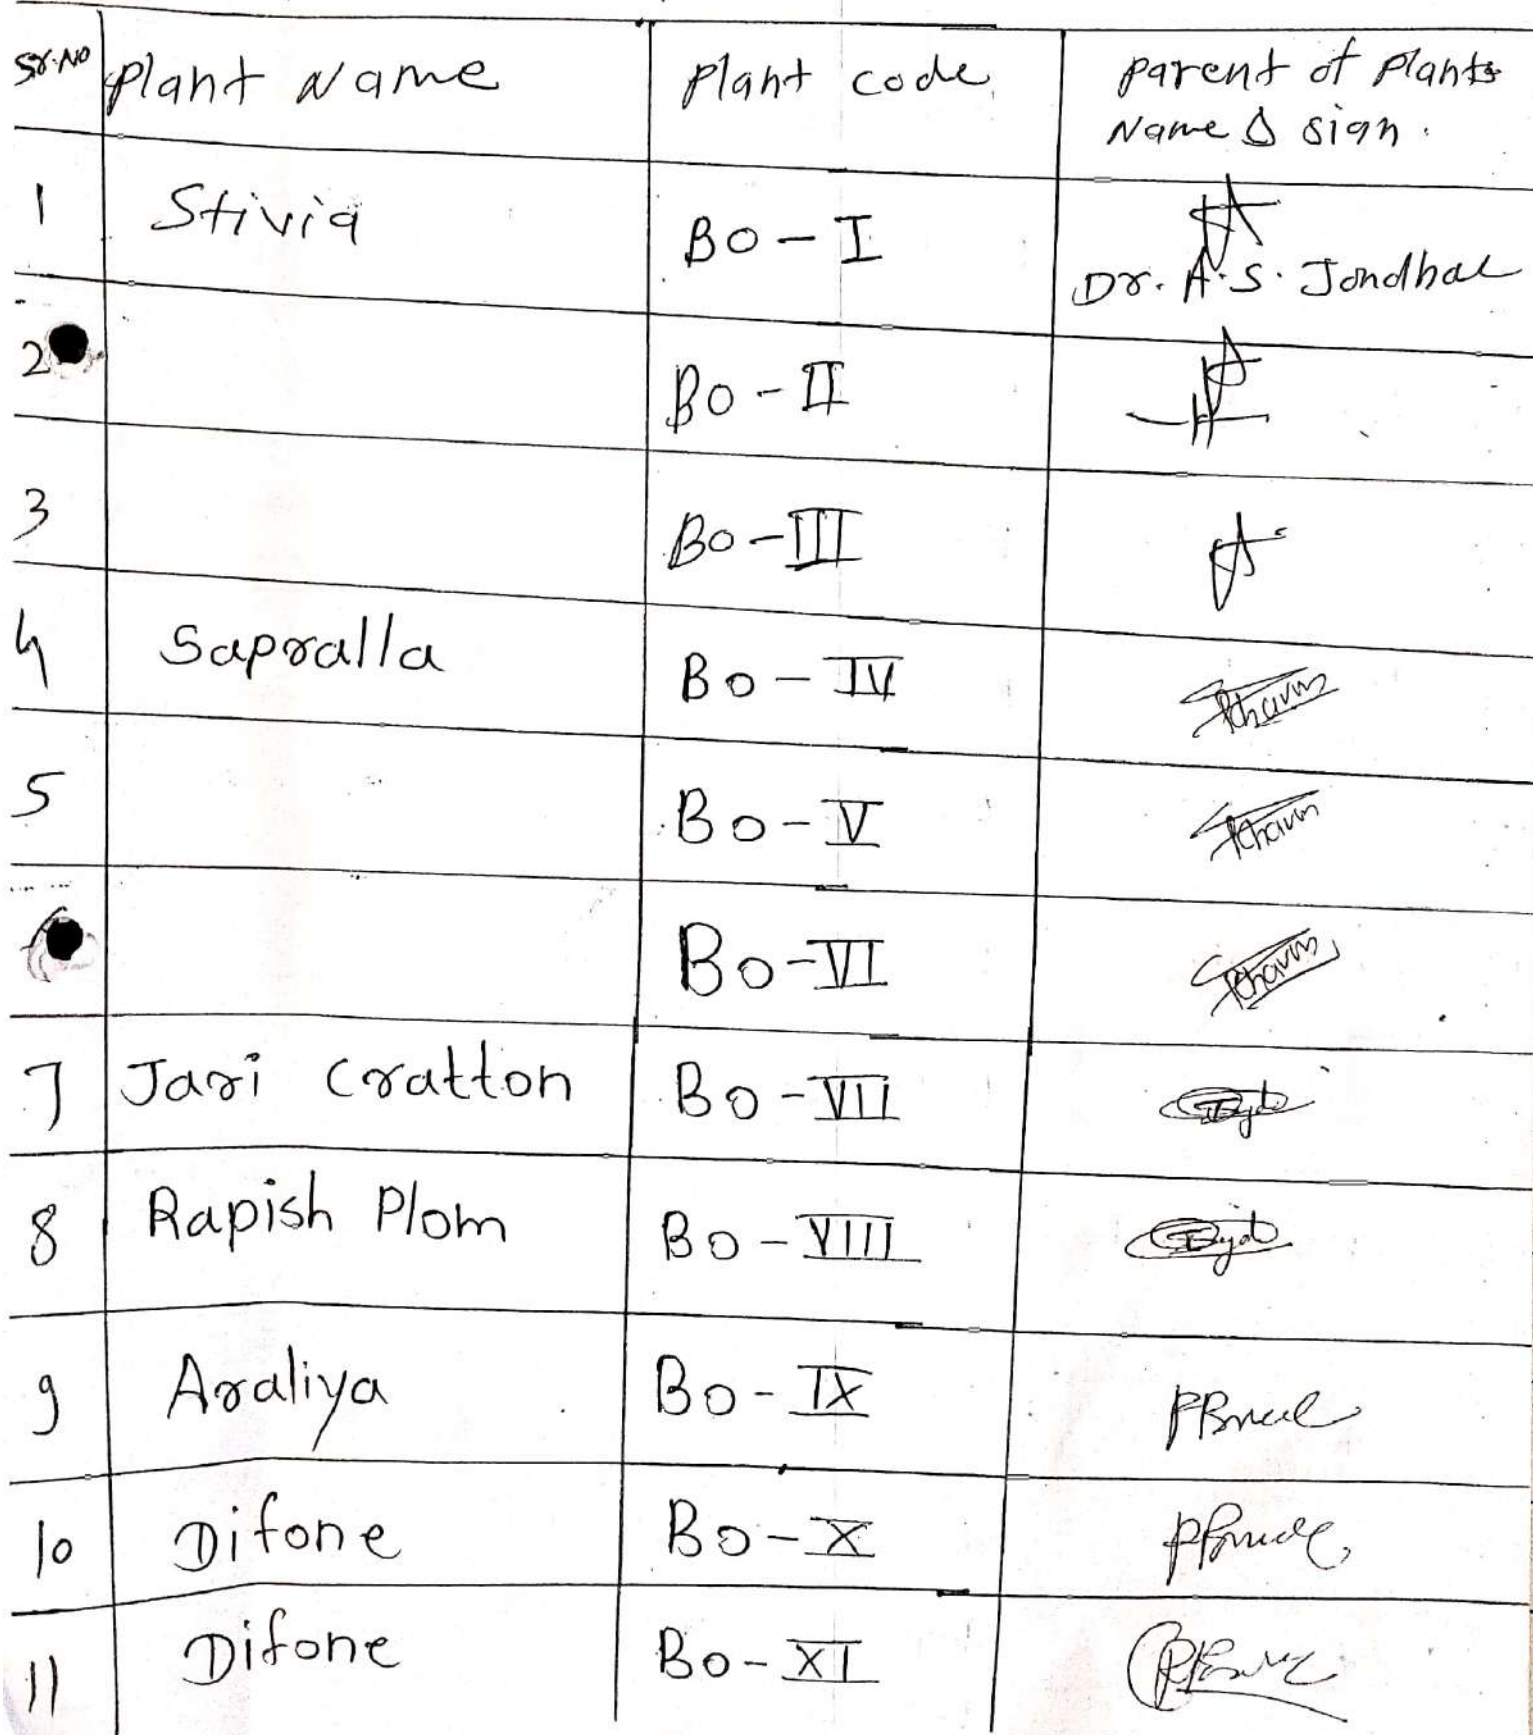 Sr.No Plant Name Plant code Parent of Plants
Name & sign.
1 Stivia Bo-I
Dr. A.S. Jondhal
2 Bo-II
3 Bo-III
4 Sapralla Bo-IV
5 Bo-V
6 Bo-VI
7 Jari Cratton Bo-VII
8 Rapish Plom Bo-VIII
9 Araliya Bo-IX
10 Difone Bo-X
11 Difone Bo-XI